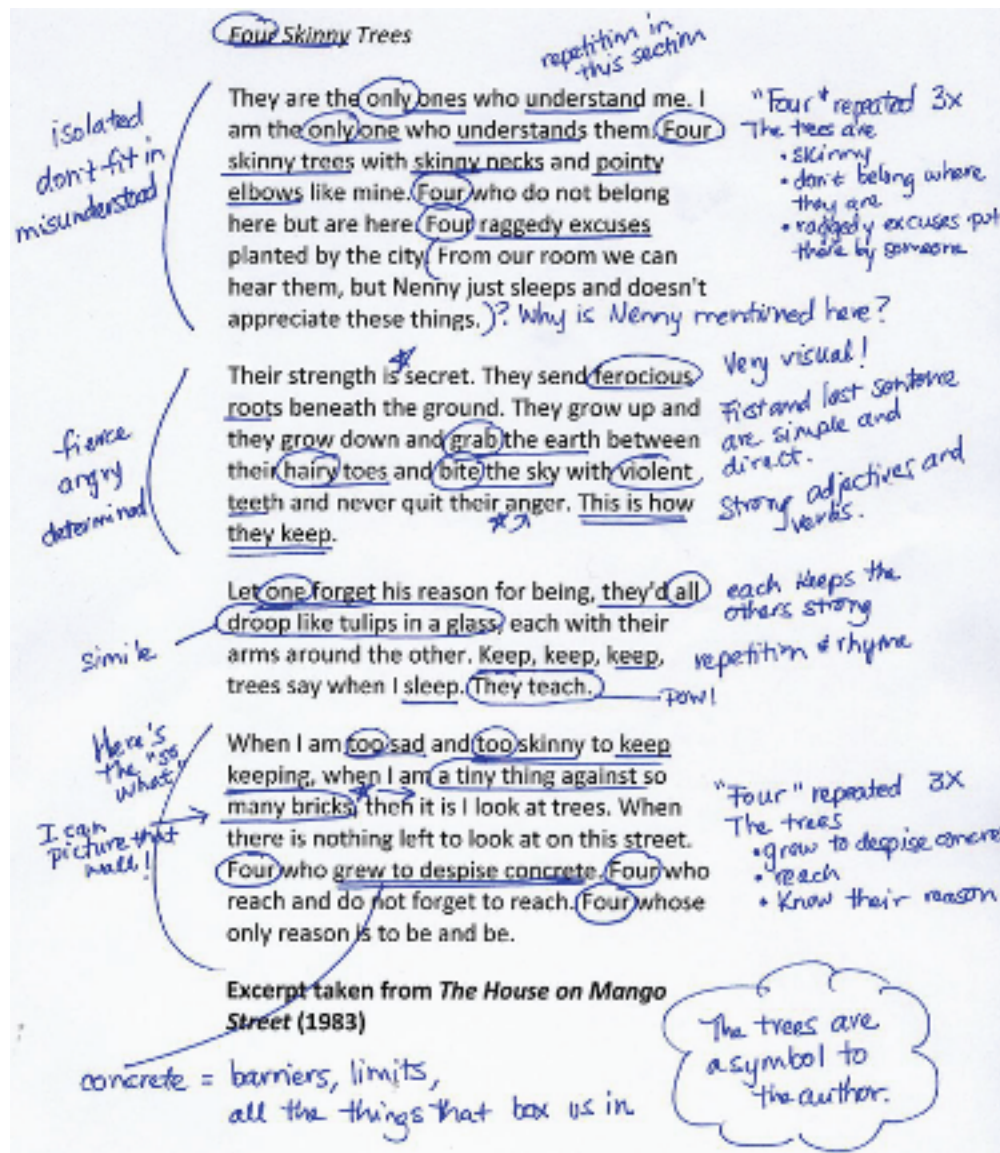 Four Skinny Trees
repetition in
this section
They are the only ones who understand me. I
am the only one who understands them. Four
skinny trees with skinny necks and pointy
elbows like mine. Four who do not belong
here but are here. Four raggedy excuses
planted by the city. From our room we can
hear them, but Nenny just sleeps and doesn't
appreciate these things.)? Why is Nenny mentioned here?
isolated
don't fit in
misunderstood
"Four" repeated 3x
The trees are
• skinny
• don't belong where
they are
• raggedy excuses put
there by someone
Their strength is secret. They send ferocious
roots beneath the ground. They grow up and
they grow down and grab the earth between
their hairy toes and bite the sky with violent
teeth and never quit their anger. This is how
they keep.
fierce
angry
determined
Very visual!
First and last sentence
are simple and
direct.
Strong adjectives and
verbs.
Let one forget his reason for being, they'd all
droop like tulips in a glass, each with their
arms around the other. Keep, keep, keep,
trees say when I sleep. They teach.
simile
each keeps the
others strong
repetition & rhyme
POW!
When I am too sad and too skinny to keep
keeping, when I am a tiny thing against so
many bricks, then it is I look at trees. When
there is nothing left to look at on this street.
Four who grew to despise concrete. Four who
reach and do not forget to reach. Four whose
only reason is to be and be.
Here's
the "so
what!
I can
picture that
wall!
"Four" repeated 3X
The trees
• grow to despise concre
• reach
• Know their reason
Excerpt taken from The House on Mango
Street (1983)
concrete = barriers, limits,
all the things that box us in
The trees are
a symbol to
the author.